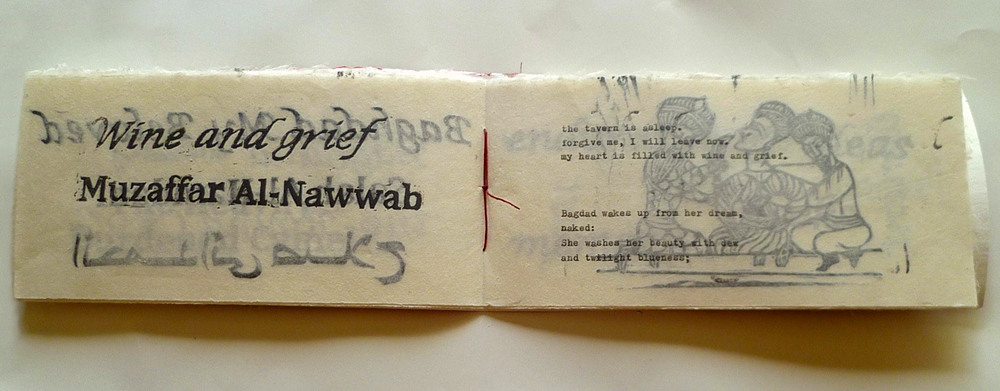 Wine and grief
Muzaffar Al-Nawwab
the tavern is asleep.
forgive me, I will leave now.
my heart is filled with wine and grief.
Bagdad wakes up from her dream,
naked:
She washes her beauty with dew
and twilight blueness;